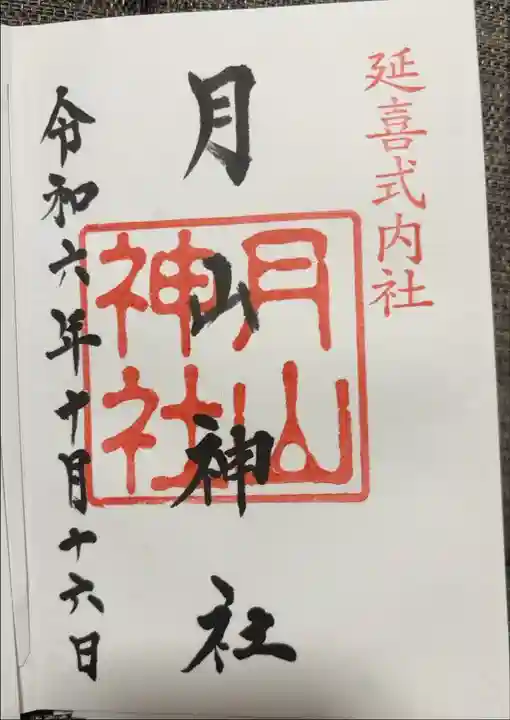 延喜式内社
月山神社
月山
神社
令和六年十月十六日